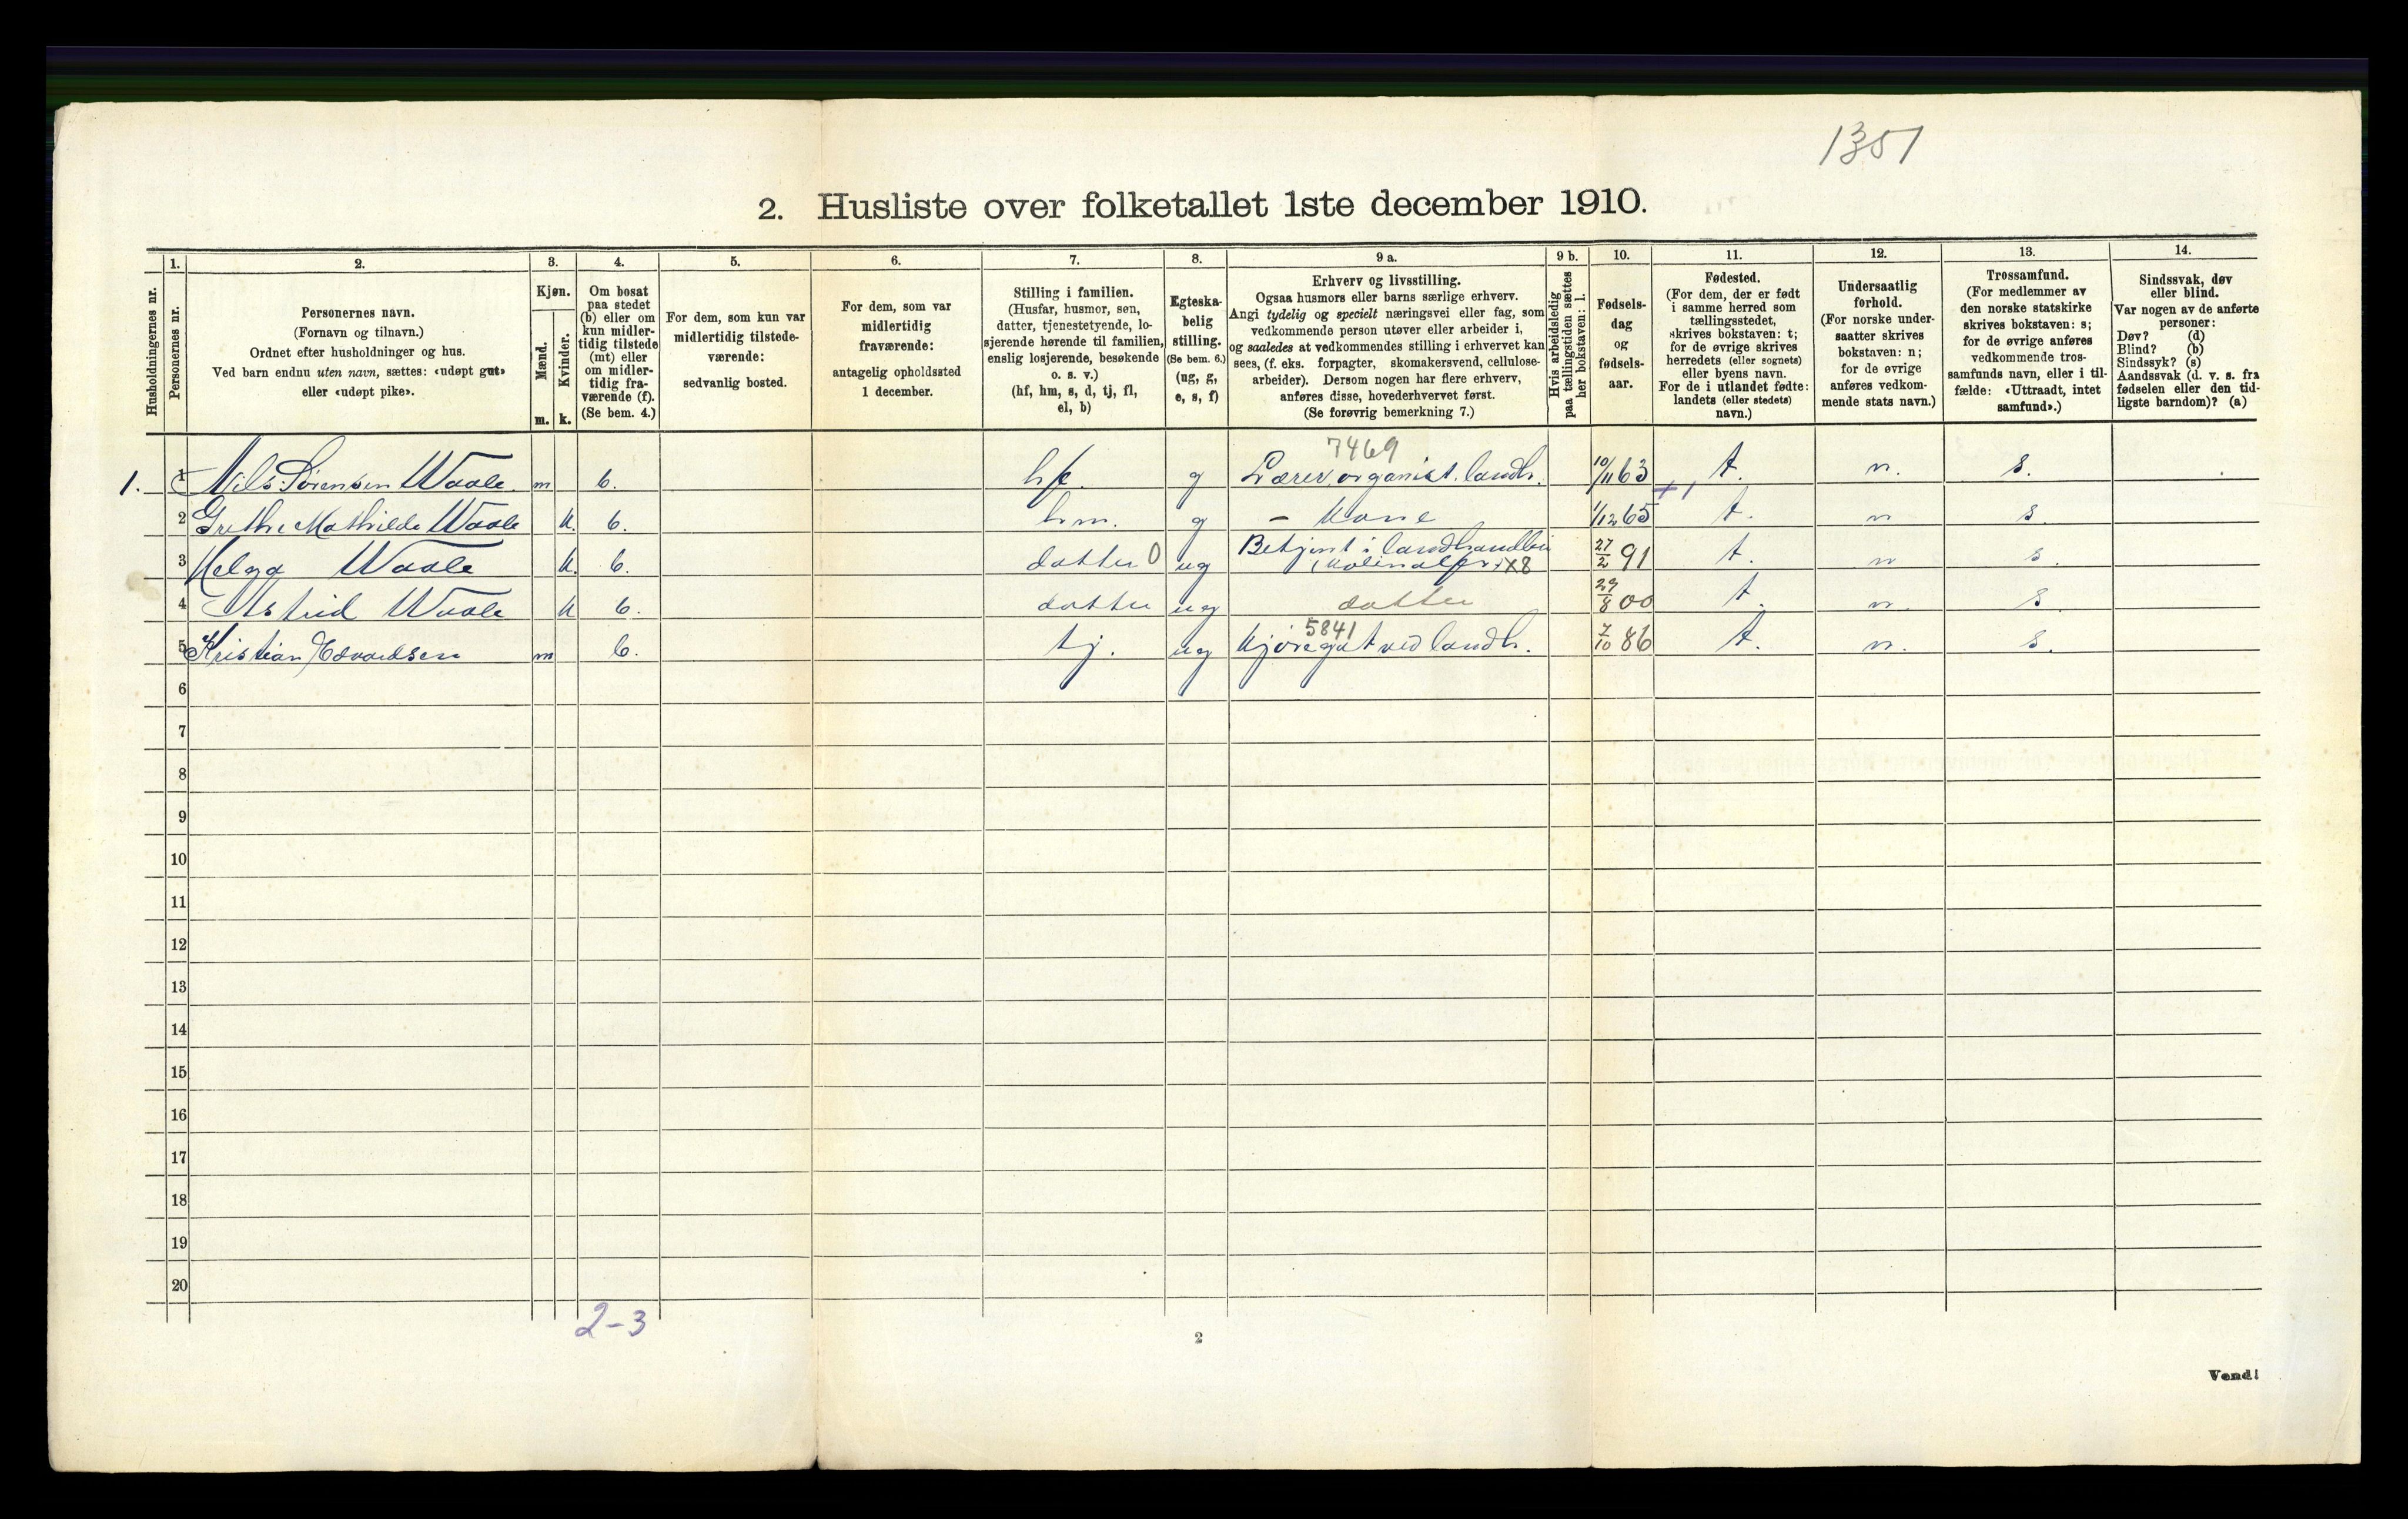 1351
2. Husliste over folketallet 1ste december 1910.
Husholdningernes nr.
1.
Personernes nr.
2.
Personernes navn.
(Fornavn og tilnavn.)
Ordnet efter husholdninger og hus.
Ved barn endnu uten navn, sættes: «udøpt gut»
eller «udøpt pike».
3.
Kjøn.
Mænd.
Kvinder.
m. k.
4.
Om bosat
paa stedet
(b) eller om
kun midler-
tidig tilstede
(mt) eller
om midler-
tidig fra-
værende (f).
(Se bem. 4.)
5.
For dem, som kun var
midlertidig tilstede-
værende:
sedvanlig bosted.
6.
For dem, som var
midlertidig
fraværende:
antagelig opholdssted
1 december.
7.
Stilling i familien.
(Husfar, husmor, søn,
datter, tjenestetyende, lo-
sjerende hørende til familien,
enslig losjerende, besøkende
o. s. v.)
(hf, hm, s, d, tj, fl,
el, b)
8.
Egteska-
belig
stilling.
(Se bem. 6.)
(ug, g,
e, s, f)
9 a.
Erhverv og livsstilling.
Ogsaa husmors eller barns særlige erhverv.
Angi tydelig og specielt næringsvei eller fag, som
vedkommende person utøver eller arbeider i,
og saaledes at vedkommendes stilling i erhvervet kan
sees, (f. eks. forpagter, skomakersvend, cellulose-
arbeider). Dersom nogen har flere erhverv,
anføres disse, hovederhvervet først.
(Se forøvrig bemerkning 7.)
9 b.
Hvis arbeidsledig
paa tællingstiden sættes
her bokstaven: l.
10.
Fødsels-
dag
og
fødsels-
aar.
11.
Fødested.
(For dem, der er født
i samme herred som
tællingsstedet,
skrives bokstaven: t;
for de øvrige skrives
herredets (eller sognets)
eller byens navn.
For de i utlandet fødte:
landets (eller stedets)
navn.)
12.
Undersaatlig
forhold.
(For norske under-
saatter skrives
bokstaven: n;
for de øvrige
anføres vedkom-
mende stats navn.)
13.
Trossamfund.
(For medlemmer av
den norske statskirke
skrives bokstaven: s;
for de øvrige anføres
vedkommende tros-
samfunds navn, eller i til-
fælde: «Uttraadt, intet
samfund».)
14.
Sindssvak, døv
eller blind.
Var nogen av de anførte
personer:
Døv? (d)
Blind? (b)
Sindssyk? (s)
Aandssvak (d. v. s. fra
fødselen eller den tid-
ligste barndom)? (a)
7469
1. 1 Nils Sørensen Waale. m b. hf. g Lærer, organist. landh. 10/11 63 t. n. s.
2 Grethe Mathilde Waale k. b. hm. g - Kone 1/12 65 t. n s.
3 Helga Waale k. b. datter 0 ug Betjent i landhandleri X8 27/2 91 t. n s.
4 Astrid Waale k b. datter ug datter 29/8 00 t. n. s.
5841
5 Kristian Edvardsen m b. tj. ug Kjøregut ved landh. 7/10 86 t. n. s.
6
7
8
9
10
11
12
13
14
15
16
17
18
19
20
2-3
2
Vend!